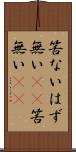 筈ないはず
無い××筈
無い××